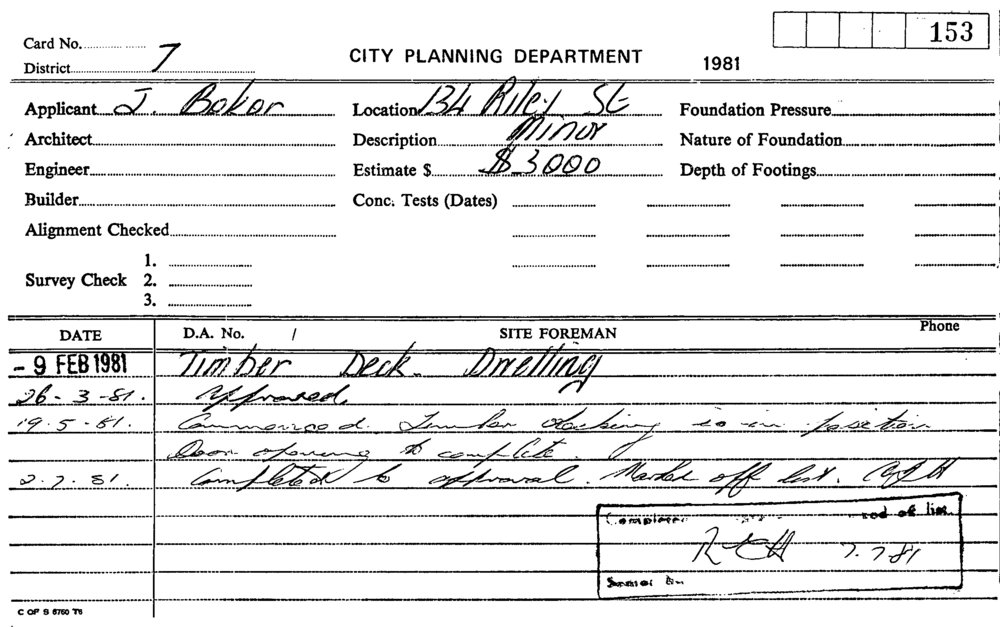 153
Card No.
District 7
CITY PLANNING DEPARTMENT 1981
Applicant J. Baker Location 134 Riley St Foundation Pressure
Architect Description Minor Nature of Foundation
Engineer Estimate $ $3000 Depth of Footings
Builder Conc. Tests (Dates)
Alignment Checked
1.
Survey Check 2.
3.
DATE D.A. No. / SITE FOREMAN Phone
- 9 FEB 1981 Timber Deck. Dwelling
26-3-81. Approved.
19.5.81. Commenced. Timber decking is in position
Door opening to complete.
2.7.81. Completed to approval. Marked off list.
of list.
7.7.81
C OF S 6760 T6